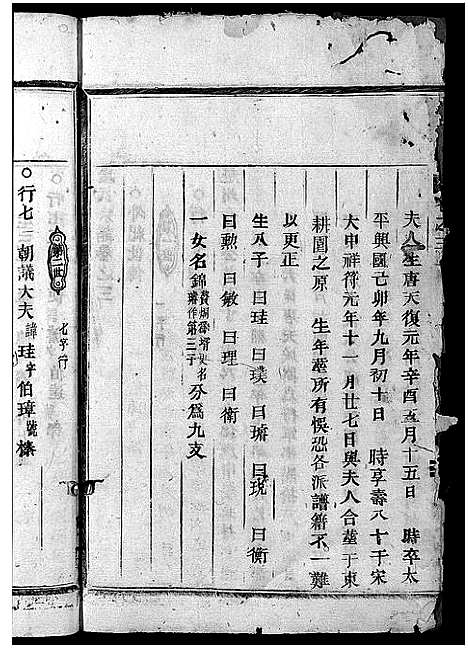 夫人生唐天復元年辛酉五月十五日　時卒太
平興國己卯年九月初十日　時享壽八十于宋
大中祥符元年十一月廿七日與夫人合塟于東
耕園之原　生年塟所有悞恐各派譜籍不一難
以更正
生八子　曰珪　曰璞　曰瑭　曰珗　曰衡
曰勲　曰敏　曰理　曰衛
一女名錦　分為九支
第二世　七字行
行七三朝議大夫諱珪字伯璋號